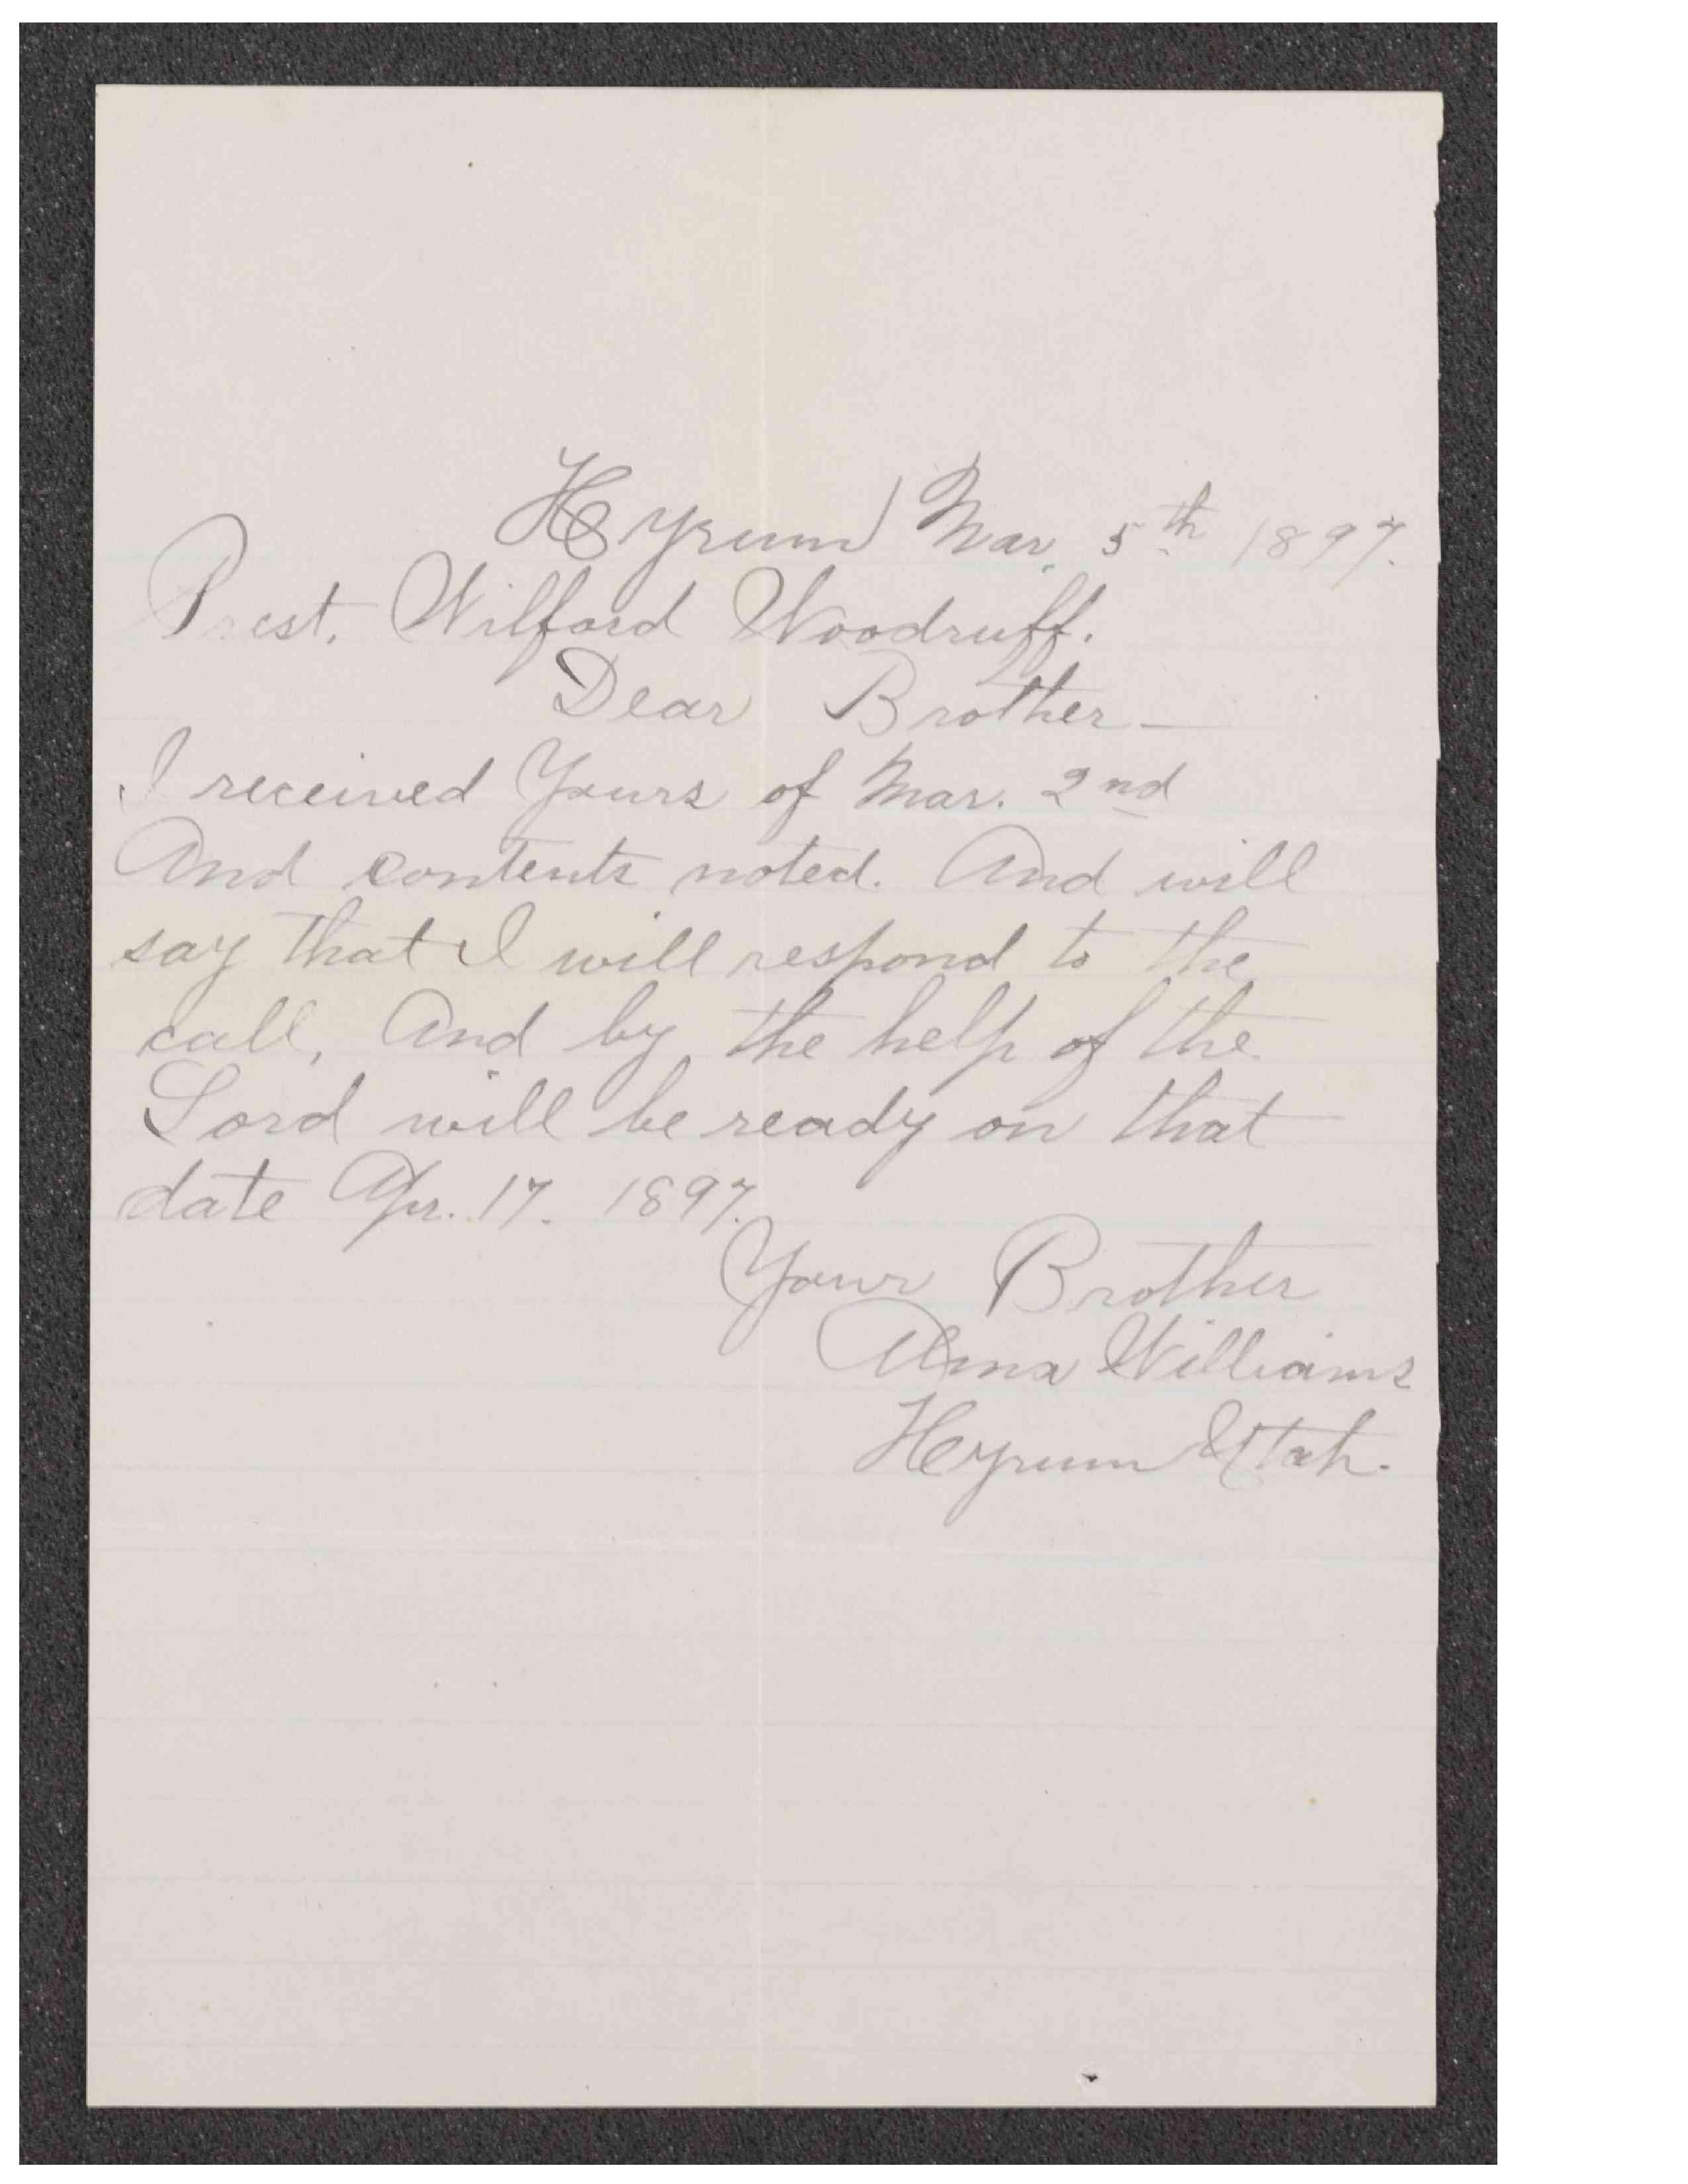 Hyrum Mar. 5th 1897.
Prest. Wilford Woodruff.
Dear Brother—
I received Yours of Mar. 2nd
And contents noted. And will
say that I will respond to the
call, And by the help of the
Lord will be ready on that
date Apr. 17. 1897.
Your Brother
Alma Williams
Hyrum Utah.